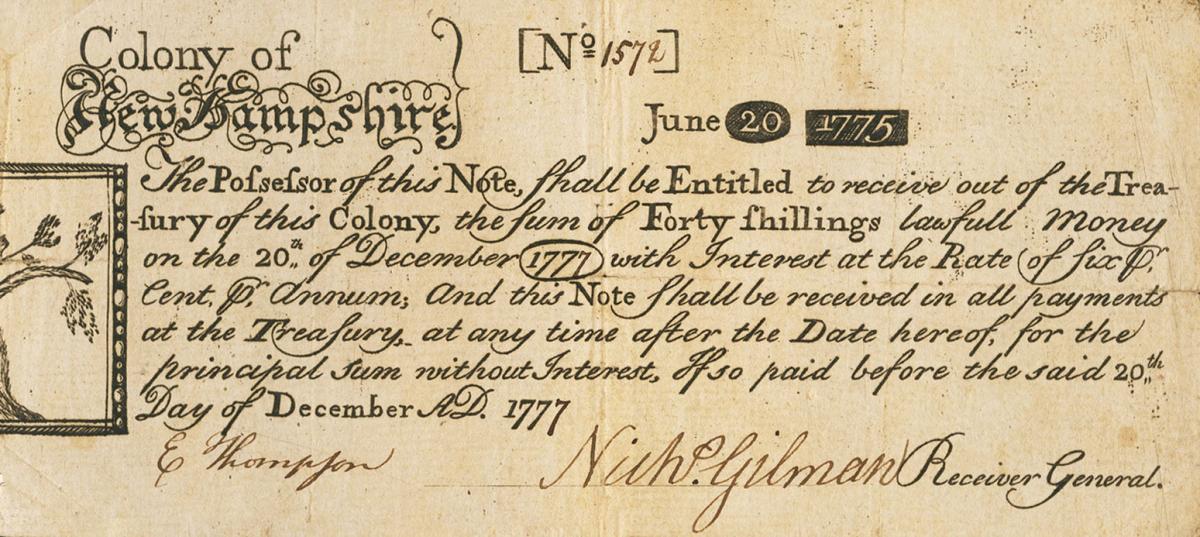 Colony of
New Hampshire
[Nº 1572]
June 20 1775
The Poſseſsor of this Note, ſhall be Entitled to receive out of the Trea-
-ſury of this Colony, the ſum of Forty ſhillings lawfull Money
on the 20.th of December 1777 with Interest at the Rate of ſix ⅌.
Cent, ⅌, Annum; And this Note ſhall be received in all payments
at the Treaſury, at any time after the Date hereof, for the
principal Sum without Interest, If so paid before the said 20.th
Day of December A.D. 1777
E Thompſon
Nichs. Gilman Receiver General.